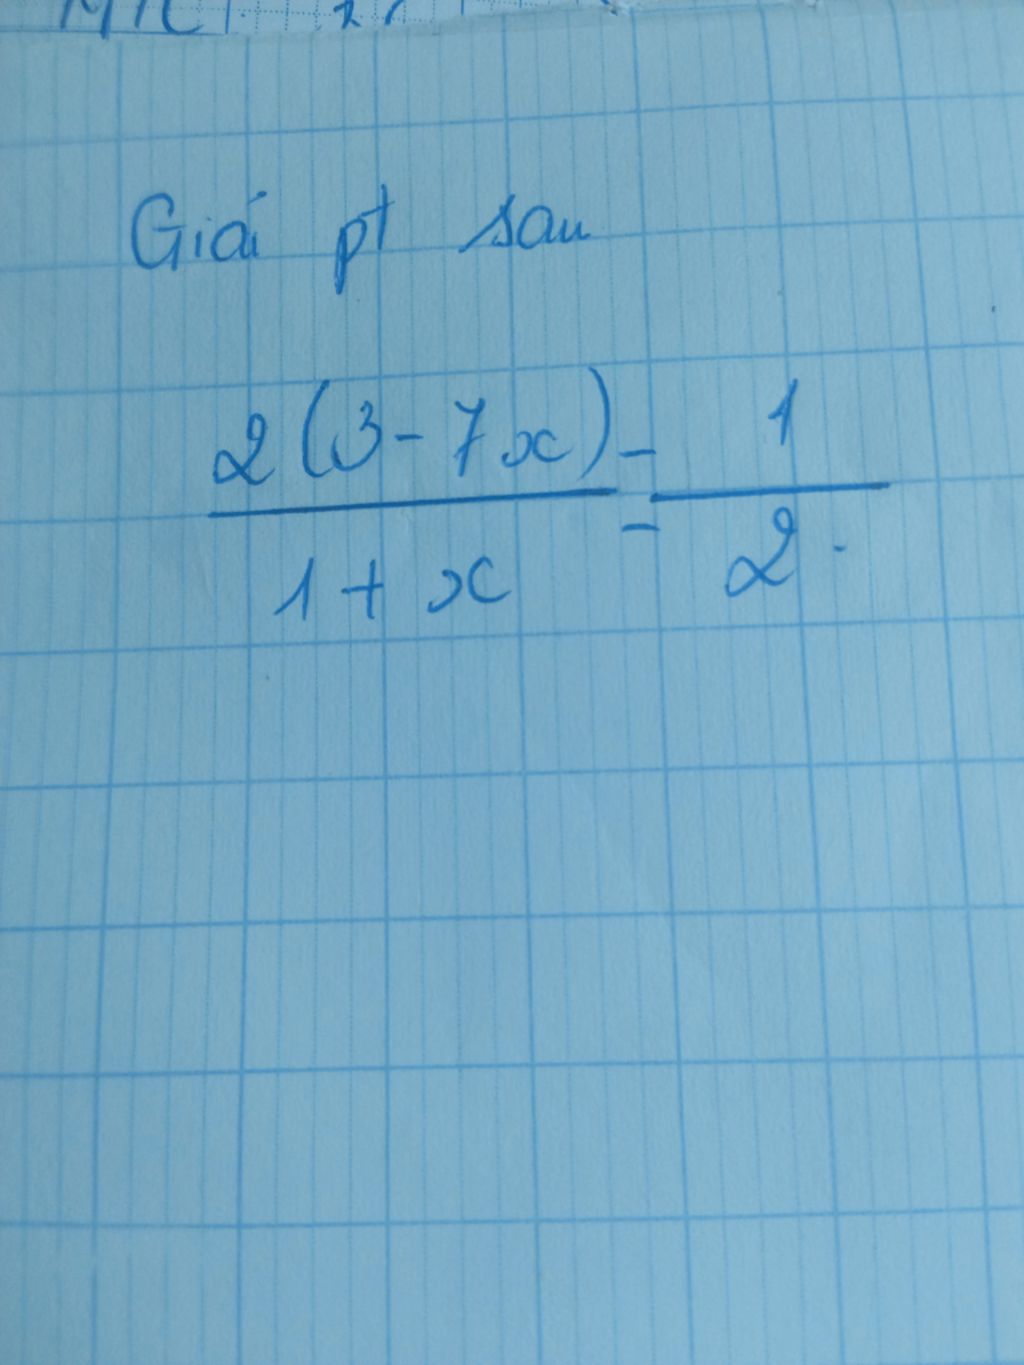 Giải pt sau
2(3-7x)/1+x = 1/2.